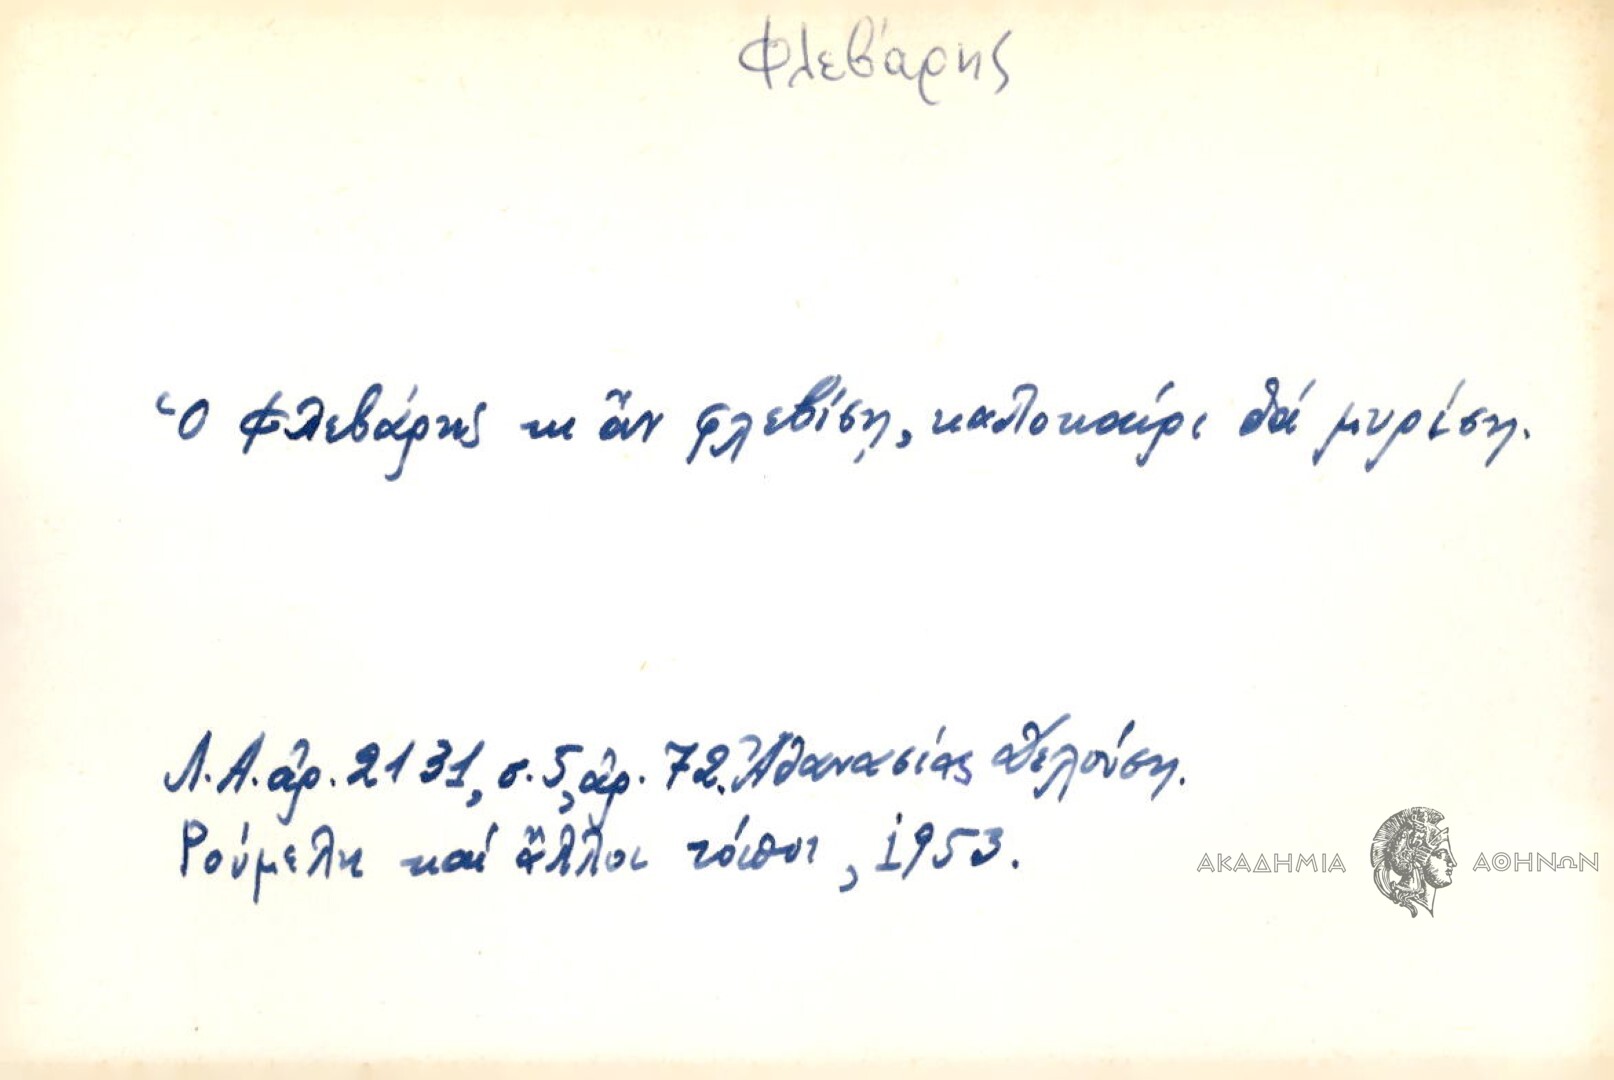 Φλεβάρης
Ὁ Φλεβάρης κι ἄν φλεβίσῃ, καλοκαίρι θά μυρίσῃ.
Λ.Α. ἀρ. 2131, σ. 5, ἀρ. 72. Ἀθανασίας
Ρούμελη καί ἄλλοι τόποι, 1953.
ΑΚΑΔΗΜΙΑ ΑΘΗΝΩΝ